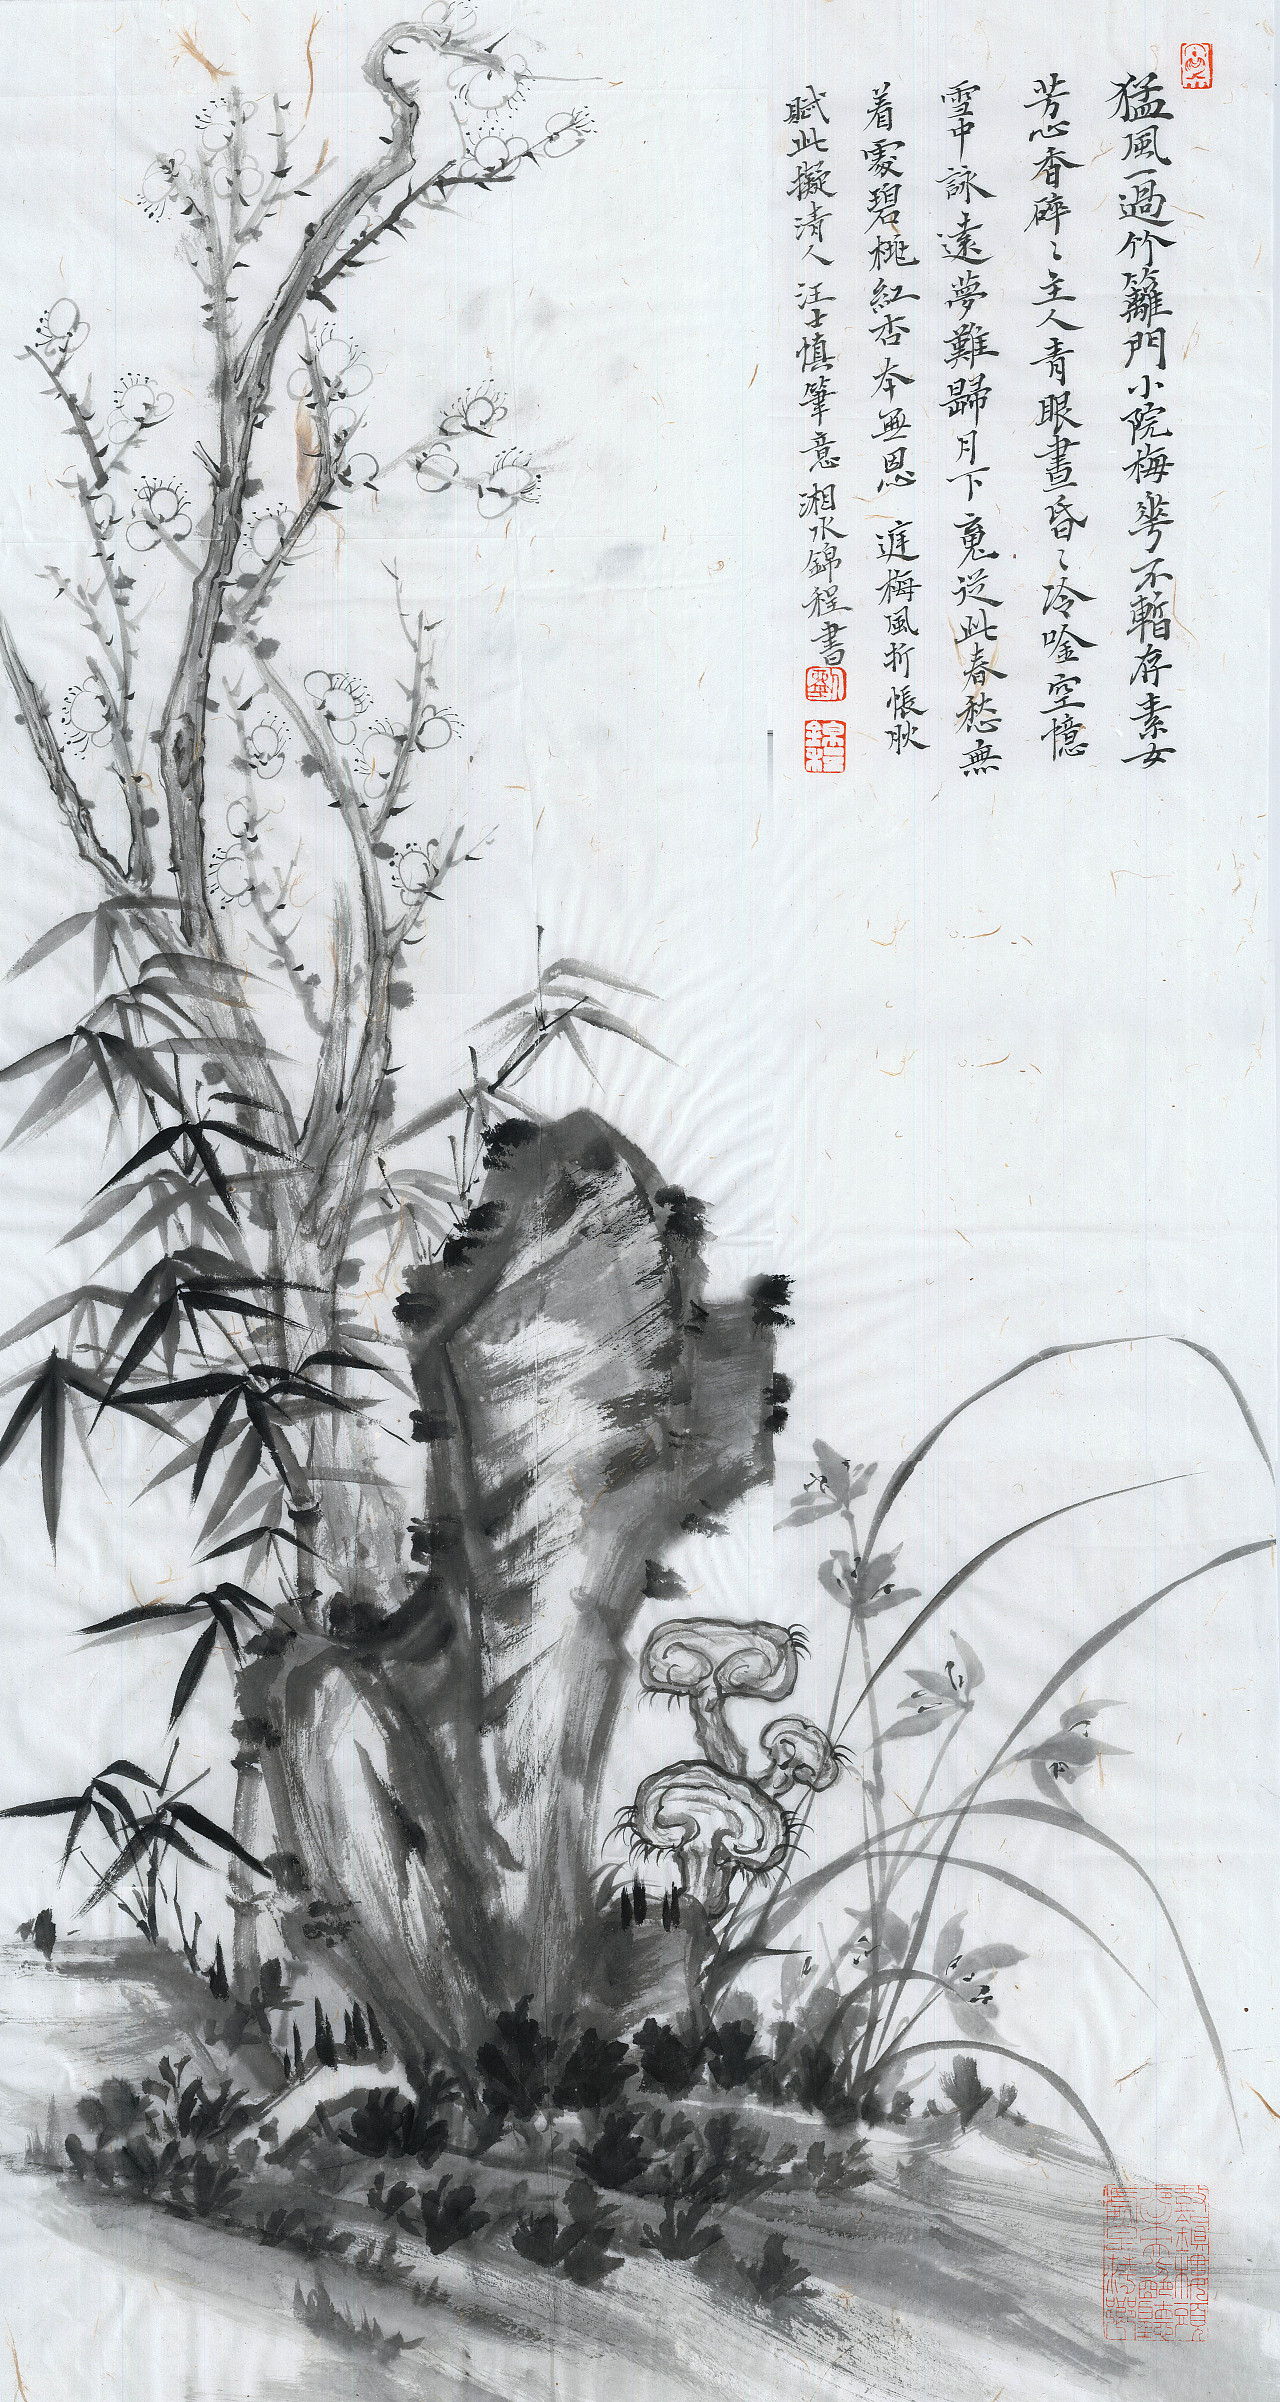 猛風一過竹籬門小院梅花不暫存素女
芳心香碎〻主人青眼晝昏〻冷唫空憶
雪中詠遠夢難歸月下䰟從此春愁無
着處碧桃紅杏本無恩 庭梅風折悵耿
賦此擬清人汪士慎筆意湘水錦程書
劉
錦程